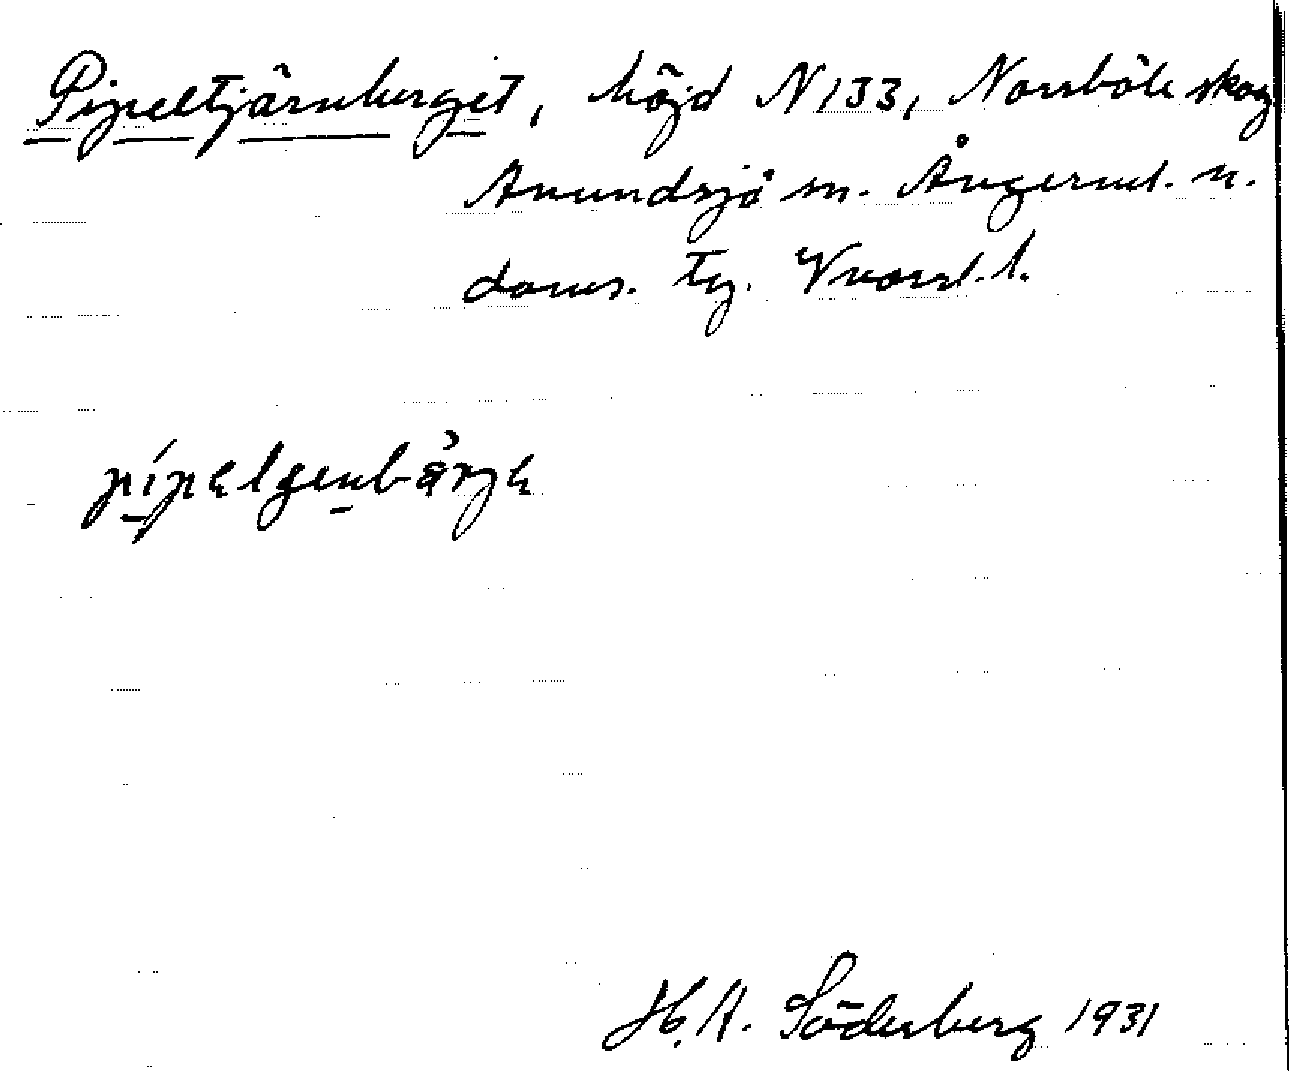 Pipeltjärnberget, höjd N 133, Norrböle skog
Anundsjö sn. Ångerml. n.
doms. tg. Vnorrl. l.
pipεlgenbärjε
H. A. Söderberg 1931